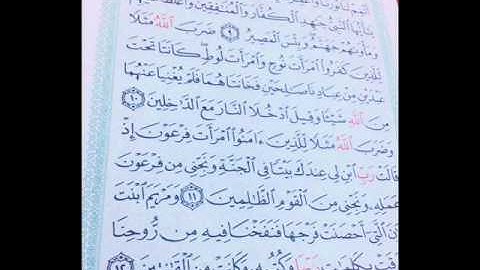 يَٰٓأَيُّهَا ٱلنَّبِيُّ جَٰهِدِ ٱلۡكُفَّارَ وَٱلۡمُنَٰفِقِينَ وَٱغۡلُظۡ
وَمَأۡوَىٰهُمۡ جَهَنَّمُۖ وَبِئۡسَ ٱلۡمَصِيرُ ٩ ضَرَبَ ٱللَّهُ مَثَلٗا
لِّلَّذِينَ كَفَرُواْ ٱمۡرَأَتَ نُوحٖ وَٱمۡرَأَتَ لُوطٖۖ كَانَتَا تَحۡتَ
عَبۡدَيۡنِ مِنۡ عِبَادِنَا صَٰلِحَيۡنِ فَخَانَتَاهُمَا فَلَمۡ يُغۡنِيَا عَنۡهُمَا
مِنَ ٱللَّهِ شَيۡـٔٗا وَقِيلَ ٱدۡخُلَا ٱلنَّارَ مَعَ ٱلدَّٰخِلِينَ ١٠
وَضَرَبَ ٱللَّهُ مَثَلٗا لِّلَّذِينَ ءَامَنُواْ ٱمۡرَأَتَ فِرۡعَوۡنَ إِذۡ
قَالَتۡ رَبِّ ٱبۡنِ لِي عِندَكَ بَيۡتٗا فِي ٱلۡجَنَّةِ وَنَجِّنِي مِن فِرۡعَوۡنَ
وَعَمَلِهِۦ وَنَجِّنِي مِنَ ٱلۡقَوۡمِ ٱلظَّٰلِمِينَ ١١ وَمَرۡيَمَ ٱبۡنَتَ
ٱلَّتِيٓ أَحۡصَنَتۡ فَرۡجَهَا فَنَفَخۡنَا فِيهِ مِن رُّوحِنَا
بِكَلِمَٰتِ رَبِّهَا وَكُتُبِهِۦ وَكَانَتۡ مِنَ ٱلۡقَٰنِتِينَ ١٢